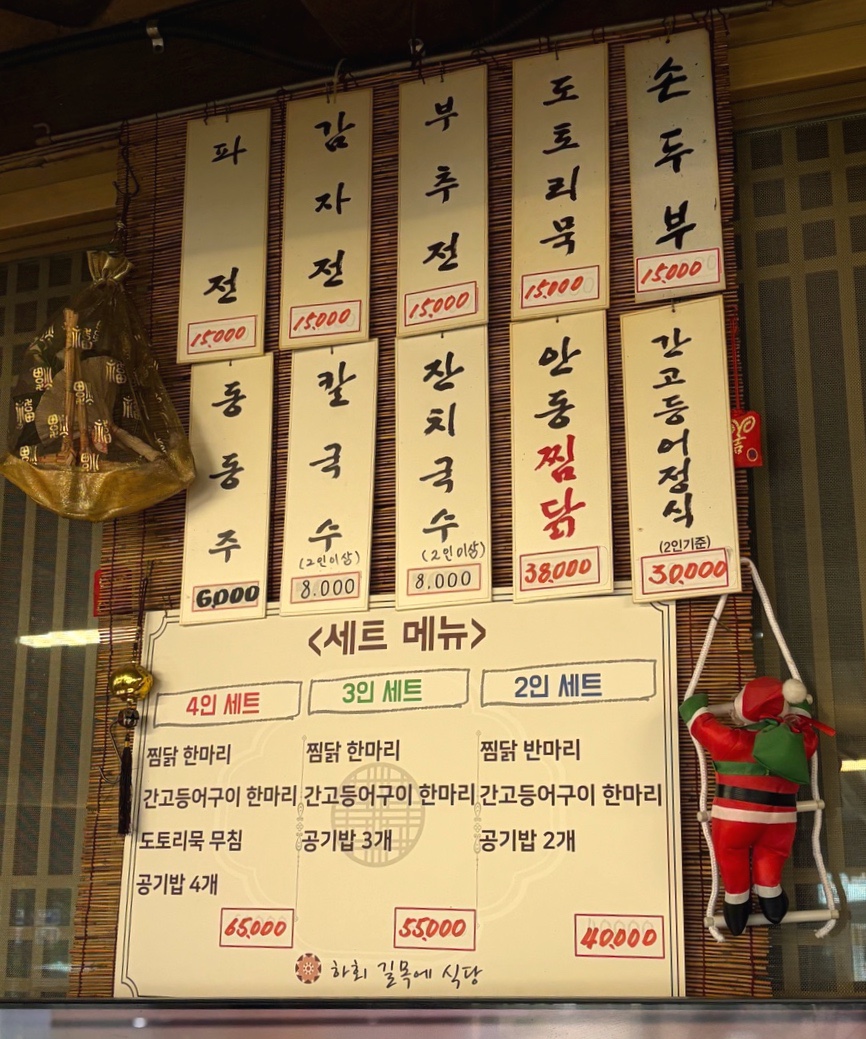 파전
15.000
감자전
15.000
부추전
15.000
도토리묵
15.000
손두부
15.000
동동주
6,000
칼국수
(2인이상)
8.000
잔치국수
(2인이상)
8.000
안동찜닭
38.000
간고등어정식
(2인기준)
30.000
<세트 메뉴>
4인 세트
찜닭 한마리
간고등어구이 한마리
도토리묵 무침
공기밥 4개
65.000
3인 세트
찜닭 한마리
간고등어구이 한마리
공기밥 3개
55.000
2인 세트
찜닭 반마리
간고등어구이 한마리
공기밥 2개
40.000
하회 길목에 식당